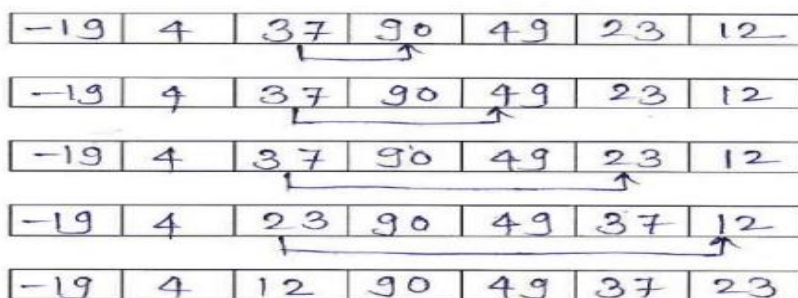 -19 4 37 90 49 23 12
-19 4 37 90 49 23 12
-19 4 37 90 49 23 12
-19 4 23 90 49 37 12
-19 4 12 90 49 37 23